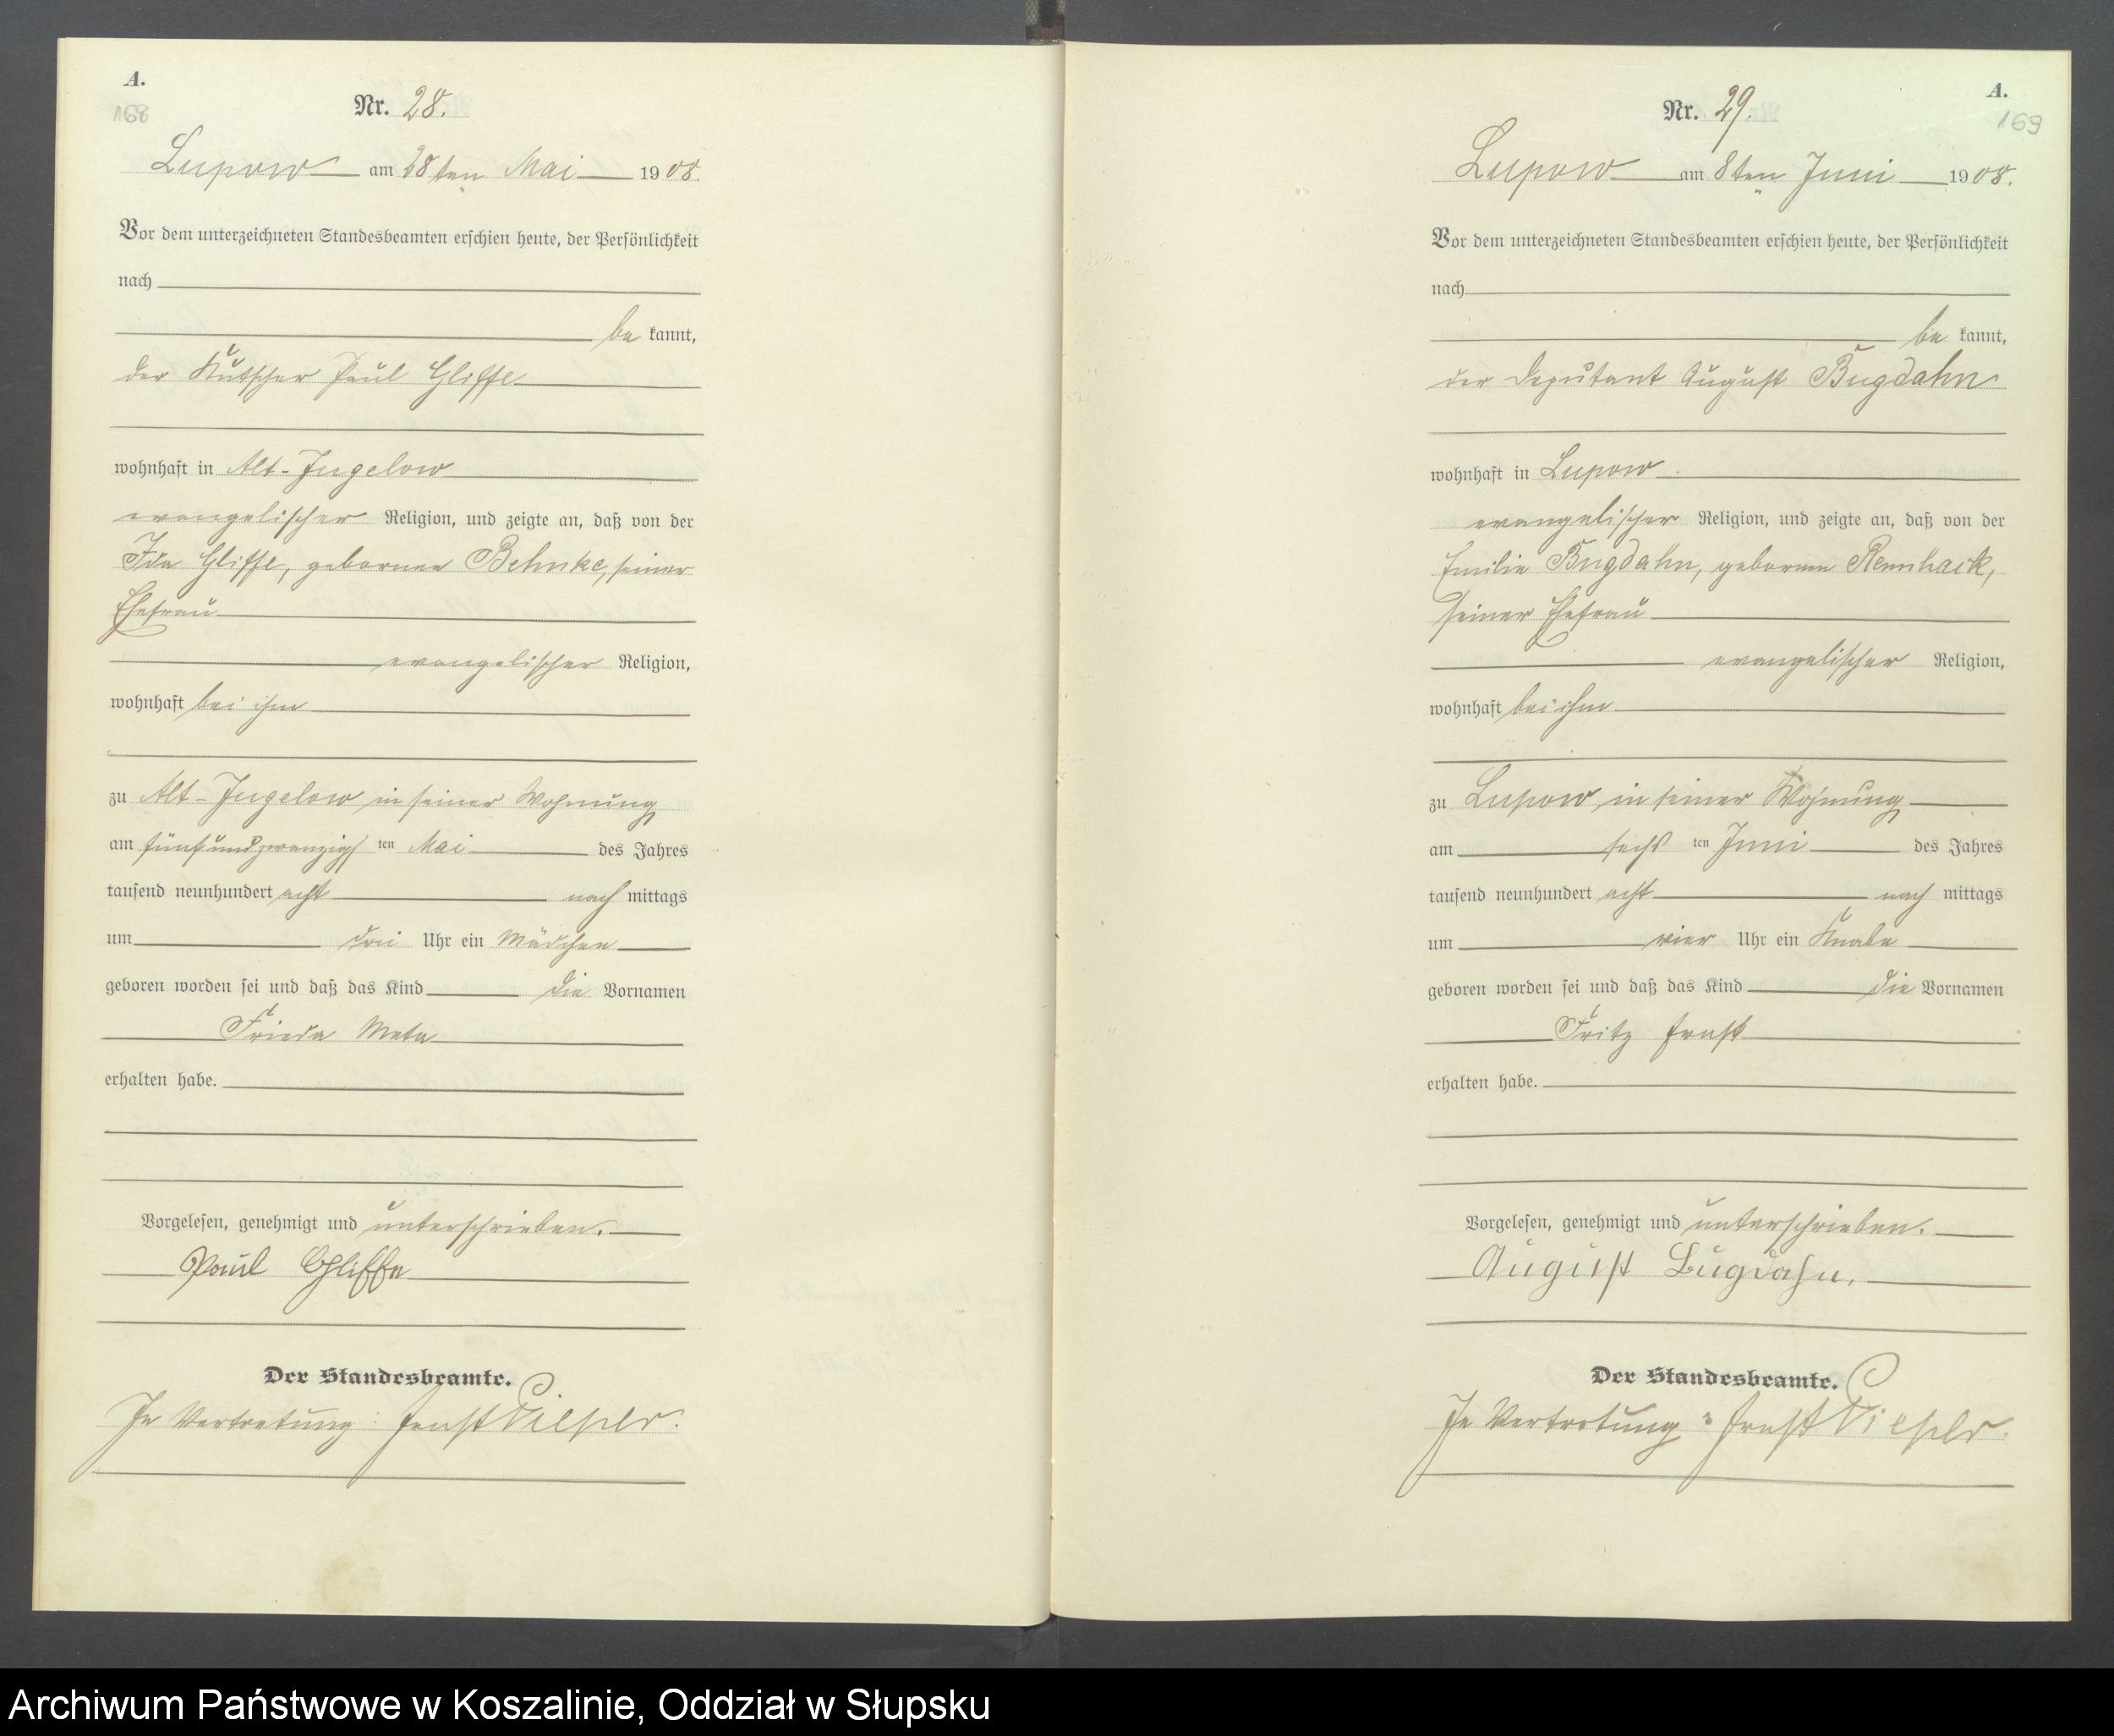 A.
168
Nr. 28.
Lupow am 28ten Mai 1908.
Vor dem unterzeichneten Standesbeamten erschien heute, der Persönlichkeit
nach
be kannt,
der Kutscher Paul Gliffe
wohnhaft in Alt-Jugelow
evangelischer Religion, und zeigte an, daß von der
Ida Gliffe, geborenen Behnke, seiner
Ehefrau
evangelischer Religion,
wohnhaft bei ihm
zu Alt-Jugelow in seiner Wohnung
am fünfundzwanzigs ten Mai des Jahres
tausend neunhundert acht nach mittags
um drei Uhr ein Mädchen
geboren worden sei und daß das Kind die Vornamen
Frieda Meta
erhalten habe.
Vorgelesen, genehmigt und unterschrieben.
Paul Gliffe
Der Standesbeamte.
In Vertretung: Ernst
A.
169
Nr. 29.
Lupow am 8ten Juni 1908.
Vor dem unterzeichneten Standesbeamten erschien heute, der Persönlichkeit
nach
be kannt,
der Deputant August Bugdahn
wohnhaft in Lupow
evangelischer Religion, und zeigte an, daß von der
Emilie Bugdahn, geborenen Rennhack,
seiner Ehefrau
evangelischer Religion,
wohnhaft bei ihm
zu Lupow, in seiner Wohnung
am sechs ten Juni des Jahres
tausend neunhundert acht nach mittags
um vier Uhr ein Knabe
geboren worden sei und daß das Kind die Vornamen
Fritz Ernst
erhalten habe.
Vorgelesen, genehmigt und unterschrieben.
August Bugdahn.
Der Standesbeamte.
In Vertretung: Ernst
Archiwum Państwowe w Koszalinie, Oddział w Słupsku